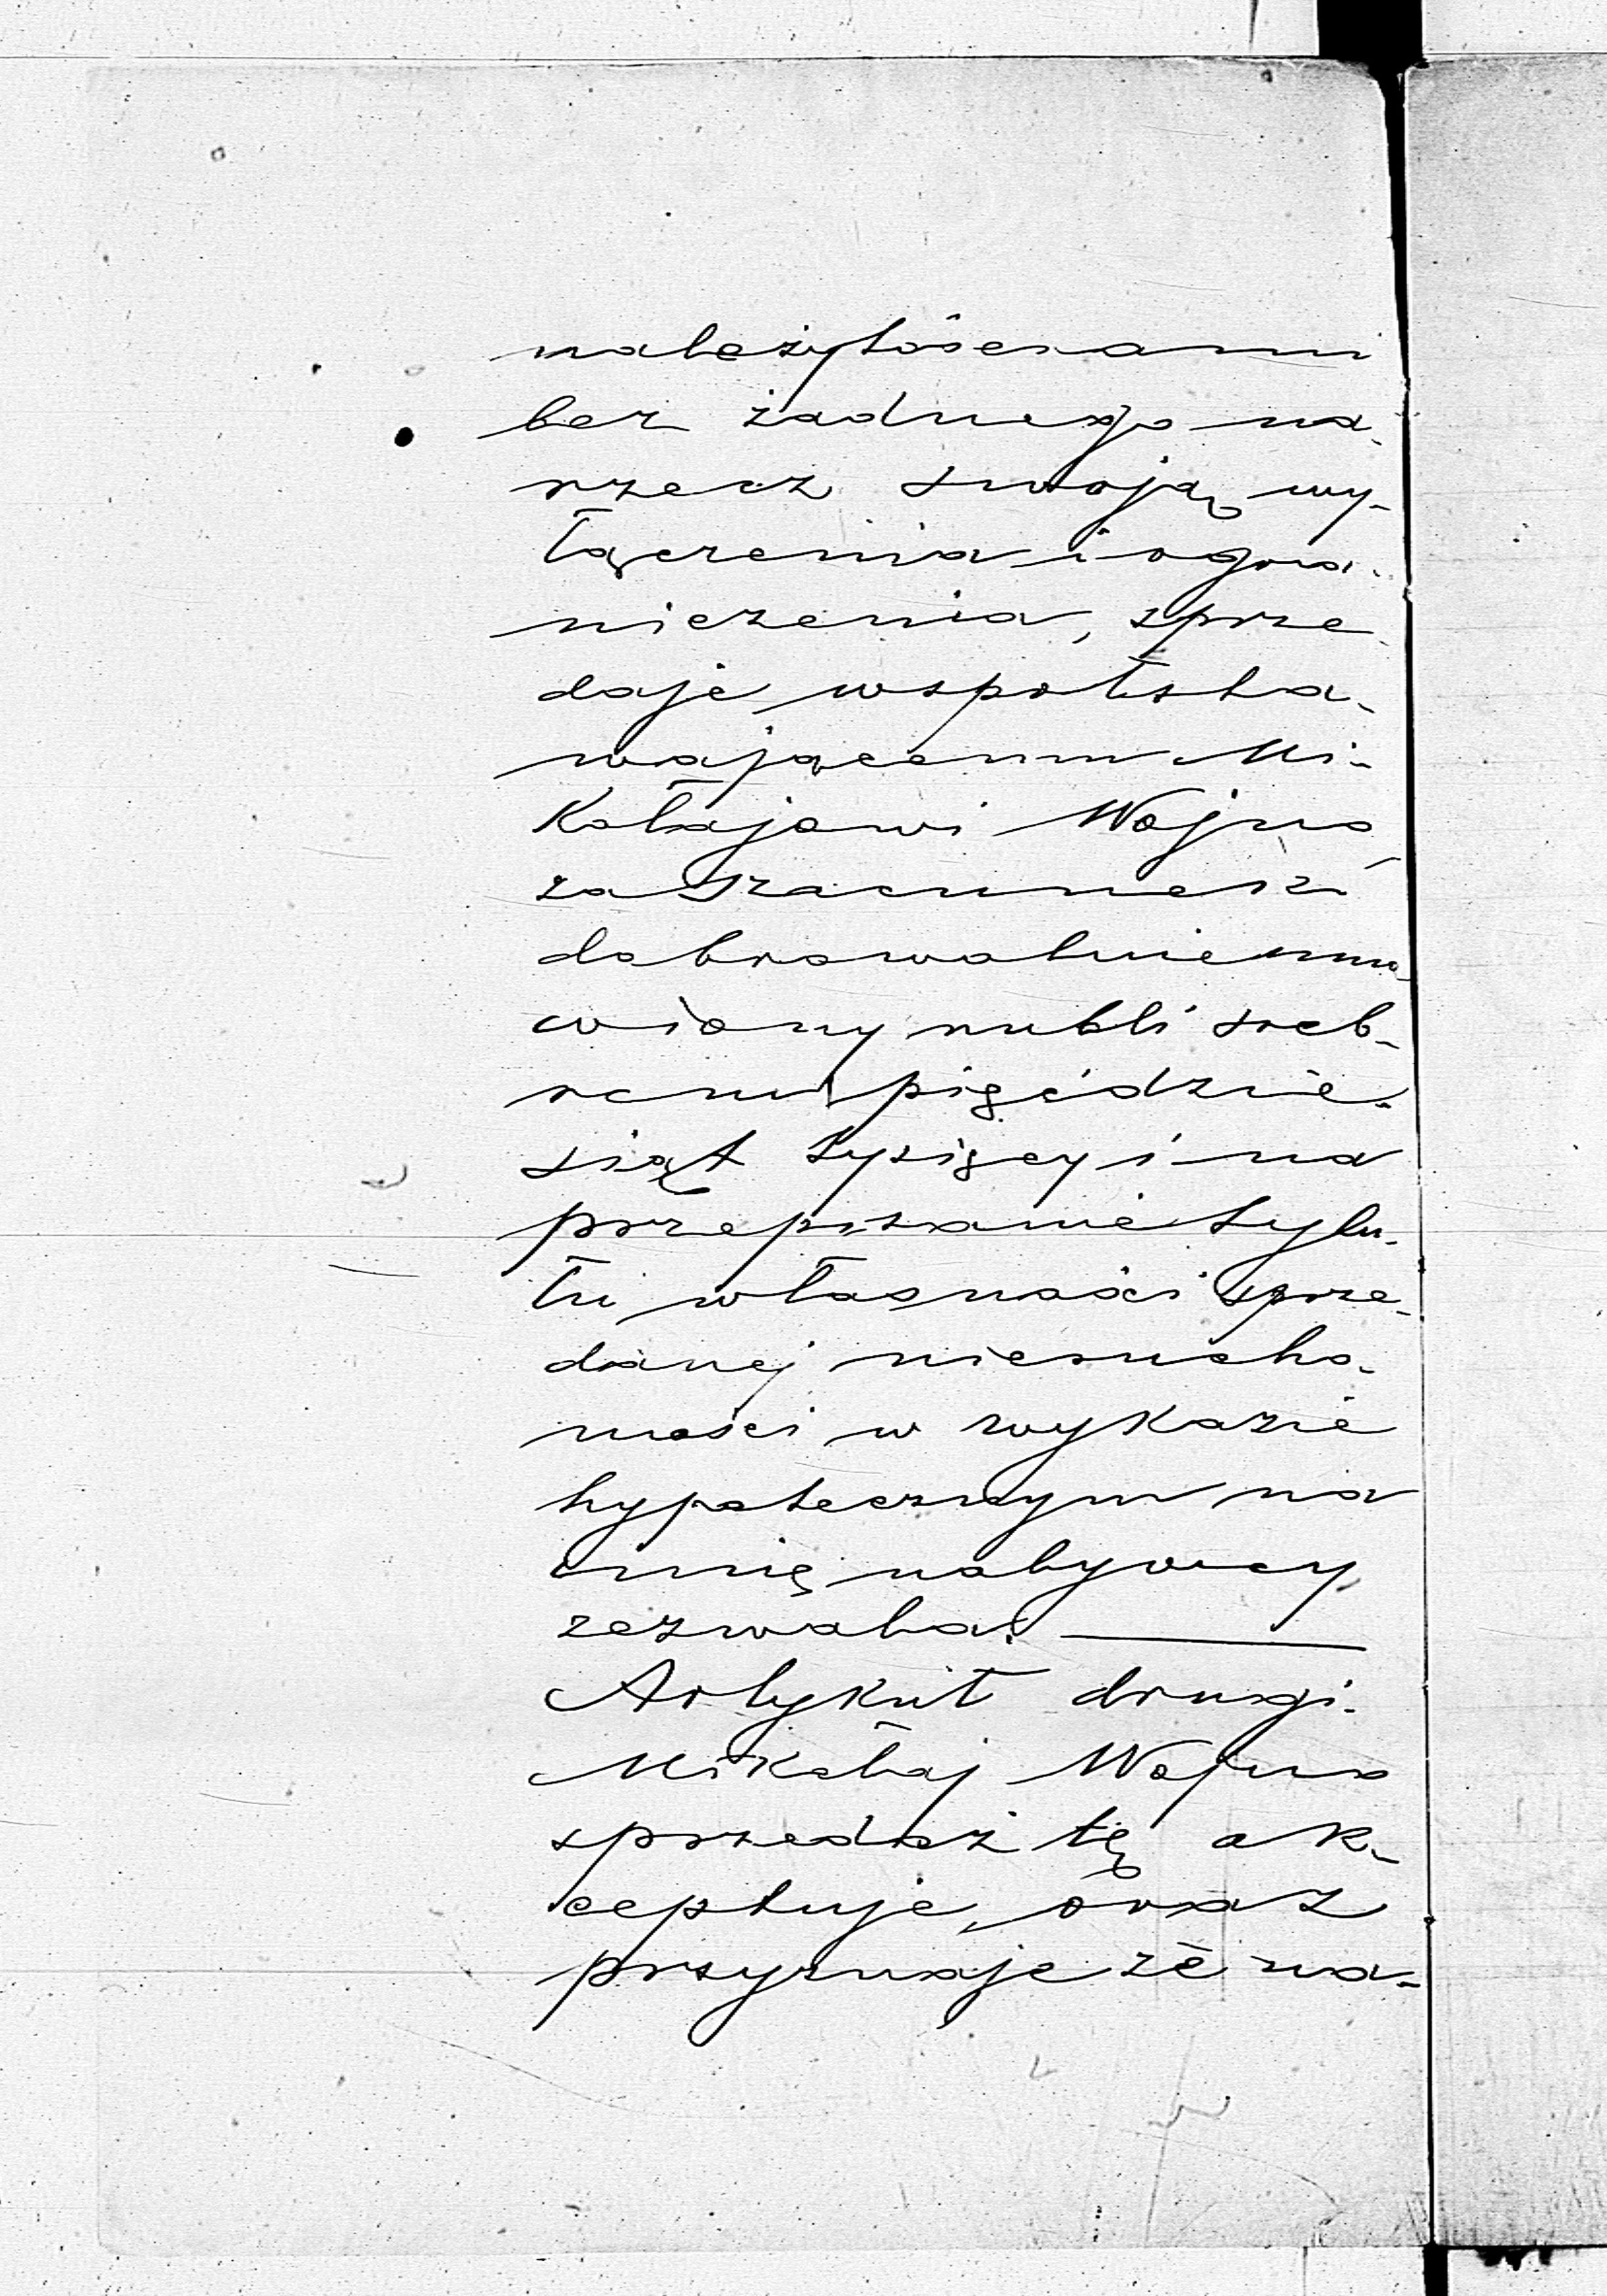 należytościami
bez żadnego na
rzecz swoją wy-
łączenia i ogra-
niczenia, sprze
daje współsta-
wającemu Mi-
kołajowi Wojno
za szacunek
dobrowolnie umó-
wiony rubli sreb-
rem pięćdzie-
siąt tysięcy i na
przepisanie tytu-
łu własności sprze-
danej nierucho-
mości w wykazie
hypotecznym na
imię nabywcy
zezwala. —
Artykuł drugi.
Mikołaj Wojno
sprzedaż tę ak-
ceptuje, oraz
przyznaje że na-